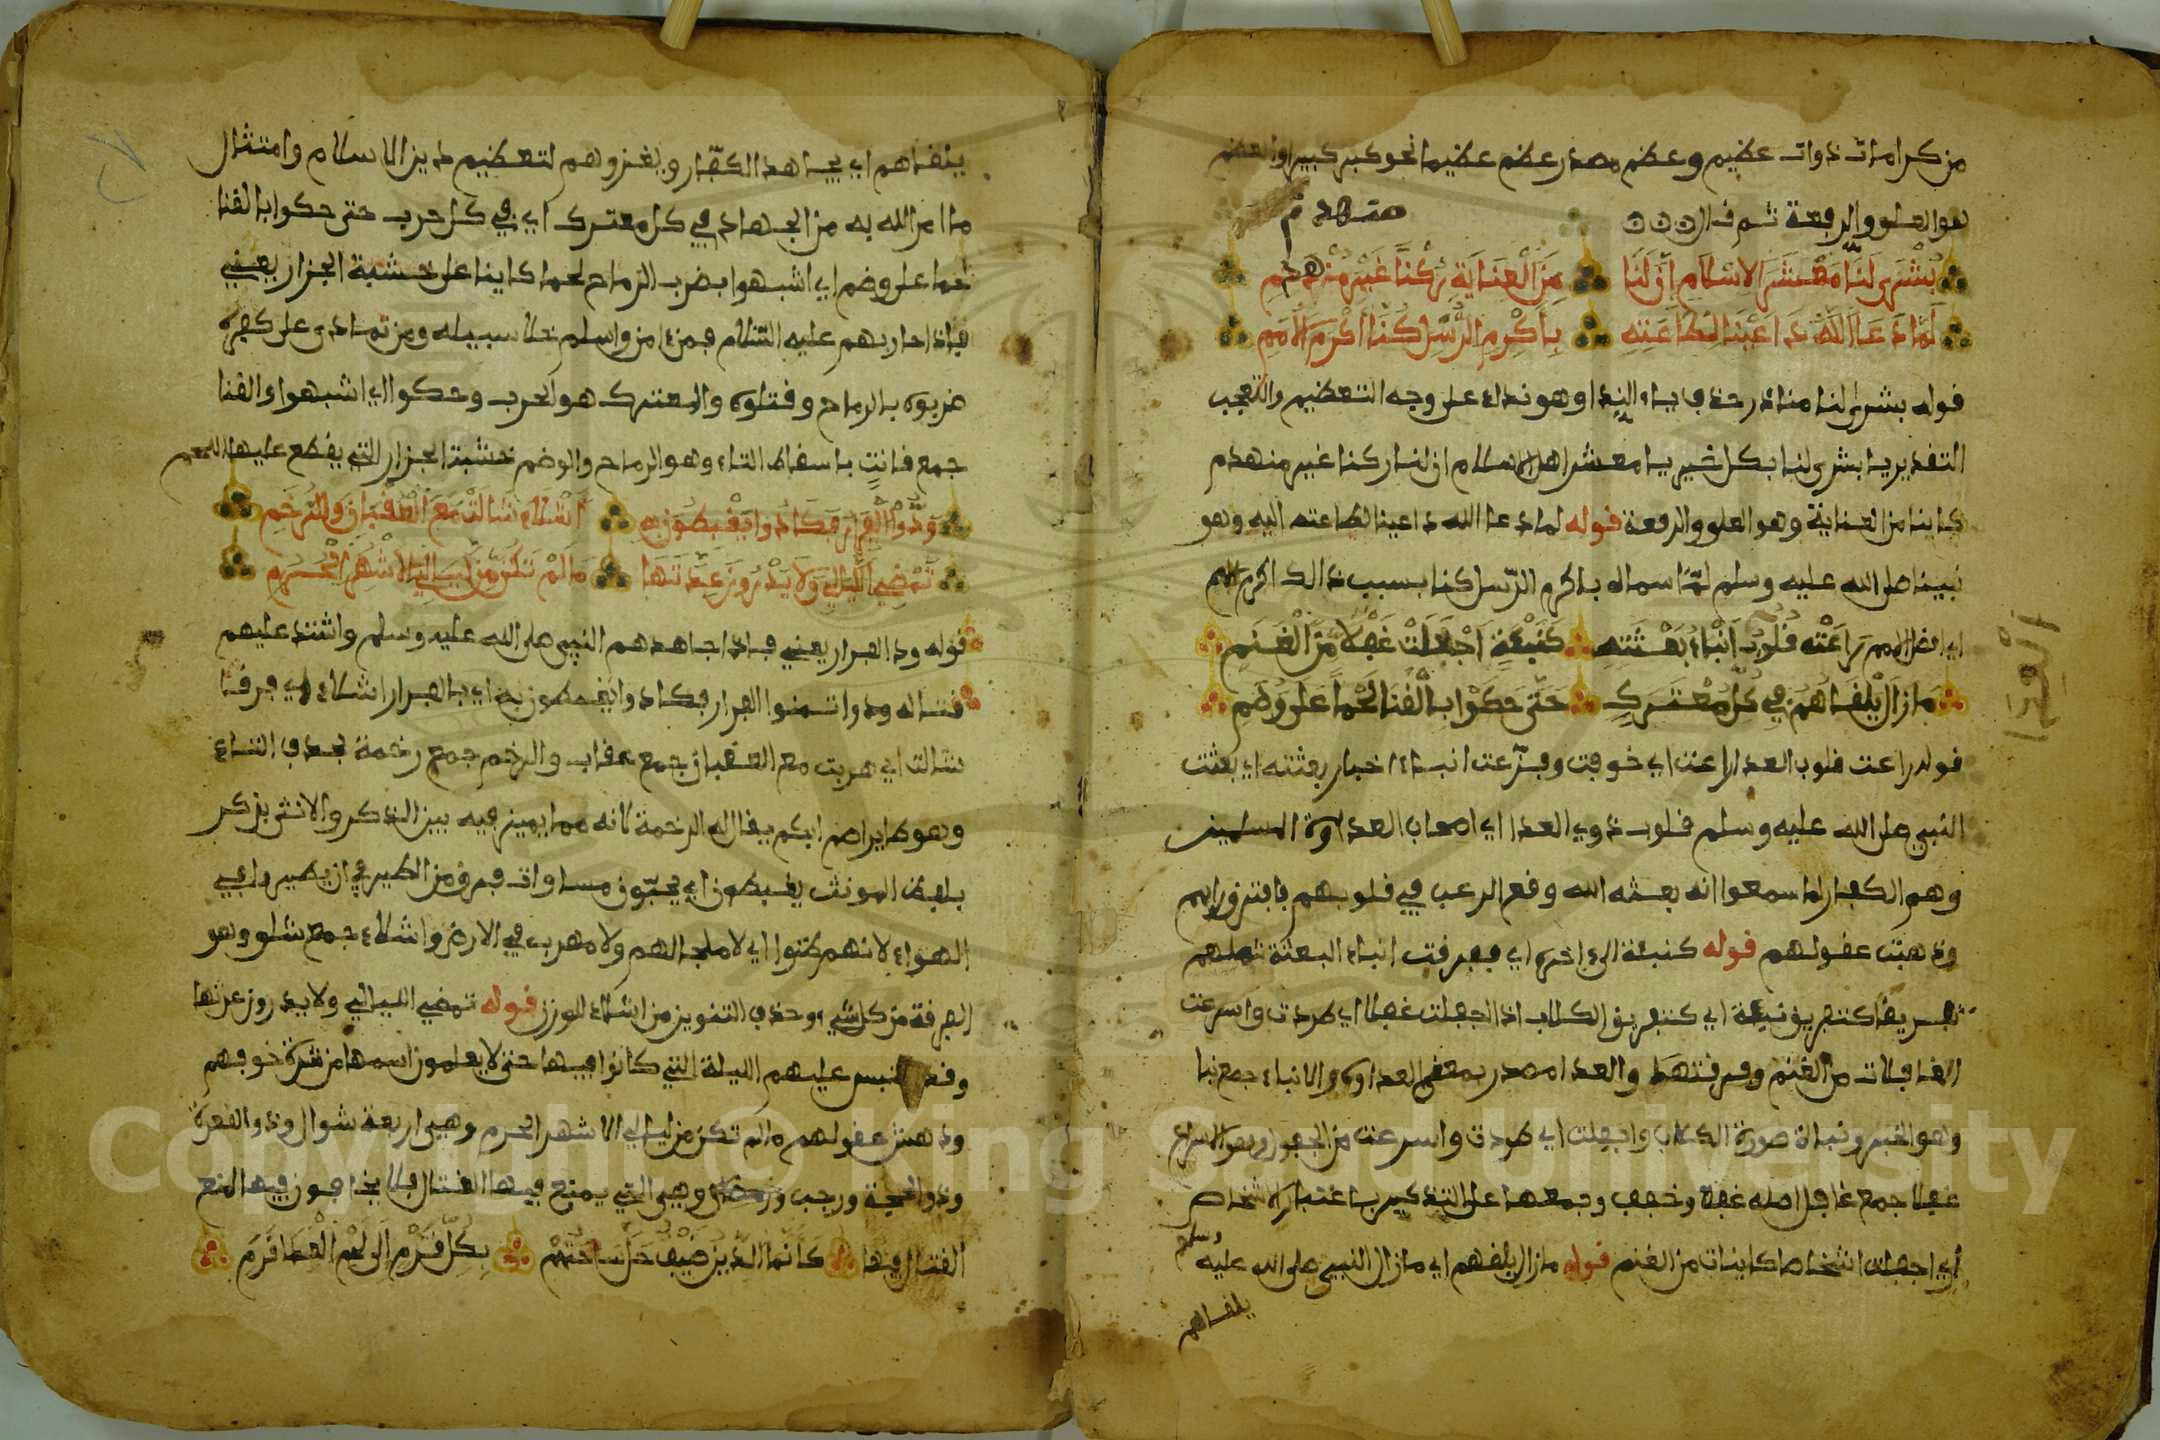 من كرامات ذوات عظيم وعظم مصدر عظم عظيما نحو كبر كبيرا والعظم
هو العلو والرفعة ثم قال
منهدم
بُشْرَى لَنَا مَعْشَرَ الاِسْلَامِ اِنَّ لَنَا مِنَ الْعِنَايَةِ رُكْنًا غَيْرَ مُنْهَدِمِ
لَمَّا دَعَا اَللَّهُ دَاعِيْنَا لِطَاعَتِهِ بِاَكْرَمِ الرُّسْلِ كُنَّا اَكْرَمَ الْاُمَمِ
قوله بشرى لنا مناد حذف ياء النداء وهو نداء على وجه التعظيم والتعجب
التقدير يا بشرى لنا بكل خير يا معشر اهل الاسلام ان لنا ركنا غير منهدم
كاينا من العناية وهو العلو والرفعة قوله لما دعا الله داعينا لطاعته اليه وهو
نبينا صلى الله عليه وسلم لمّا سماه باكرم الرّسل كنا بسبب ذالك اكرم الامم
اي افضل الامم رَاعَتْ قُلُوبَ اَنْبَاءُ بَعْثَتِهِ كَنَبْئَةٍ اَجْفَلَتْ غُفْلًا مِّنَ الْغَنَمِ
مَا زَالَ يَلْقَاهُمُ فِي كُلِّ مُعْتَرَكٍ حَتَّى حَكَوْا بِالْقَنَا لَحْمًا عَلَى وَضَمِ
قوله راعت قلوب العدا راعت اي خوفت وفزّعت انباء اخبار بعثته اي بعثت
النبي صلى الله عليه وسلم قلوب ذوي العدا اي اصحاب العداوة المسلمين
وهم الكفار لما سمعوا انه بعثه الله وقع الرعب في قلوبهم
وذهبت عقولهم قوله كنبئة الى اخره اي ففرقت انباء البعثة شملهم
تفريقا كتفريق نبئة اي كتفريق الكلاب اذا اجفلت غفلا اي طردت واسرعت
الغافلات من الغنم وفرقتها والعدا مصدر بمعنى العداوة والانباء جمع نبا
وهو الخبر ونباة صورة الكلاب واجفلت اي طردت واسرعت من الجفول وهو الاسراع
غفلا جمع غافل اصله غفلا وخفف وجمعها على التذكير باعتبار الاشخاص
اي اجفلت اشخاصا كاينات من الغنم قوله مازال يلقهم اي مازال النبي صلى الله عليه وسلم
يلقاهم
يلقاهم اي يجاهد الكفّار ويغزوهم لتعظيم دين الاسلام وامتثال
ما امر الله به من الجهاد في كل معترك اي في كل حرب حتى حكوا بالقنا
لحما على وضم اي اشبهوا بضرب الرماح لحما كاينا على خشبة الجزار يعني
فاذا حاربهم عليه السّلام فمن امن واسلم خلا سبيله ومن تمادى على كفره
ضربوه بالرماح وقتلوه والمعترك هو الحرب وحكوا اي اشبهوا والقنا
جمع قانتٍ باسقاط التاء وهو الرماح والوضم خشبة الجزار التي يقطع عليها اللحم
وَدُّوا الْفِرَارَ فَكَادُوا يَغْبِطُونَ بِهِ اَشْلَاءَ شَالَتْ مَعَ الْعُقْبَانِ وَالرَّخَمِ
تَمْضِي اللَّيَالِي وَلَا يَدْرُونَ عِدَّتَهَا مَا لَمْ تَكُنْ مِّن لَّيَالِي الْاَشْهُرِ الْحُرُمِ
قوله ود الفرار يعني فاذا جاهدهم النبي صلى الله عليه وسلم واشتد عليهم
قتاله ودوا تمنوا الفرار فكادوا يغبطون به اي بالفرار اشلاء اي فرقا
شالت اي هربت مع العقبان جمع عقاب والرخم جمع رخمة بحذف التاء
وهو طاير اصم ابكم يقال له الرخمة لانه مما يميز فيه بين الذكر والانثى بذكر
بلفظ المونث يغبطون اي يحبّون مساوات فرق من الطير في ان يطيروا في
الهواء لانهم اي لا ملجا لهم ولا مهرب في الارض واشلاء جمع شلو وهو
الفرقة من كل شيء وحذف التنوين من اشلاء للوزن قوله تمضي الليالي ولا يدرون عدتها
وقد التبس عليهم الليلة التي كانوا فيها حتى لا يعلمون اسمها من شدة خوفهم
وذهبت عقولهم ما لم تكن من ليالي الاشهر الحرم وهي اربعة شوال وذو القعدة
وذو الحجة ورجب وهي التي يمنع فيها القتال فلا يخافون فيها لمنع
القتال فيها كَاَنَّمَا الدِّينُ ضَيْفٌ حَلَّ سَاحَتَهُمْ بِكُلِّ قَرْمٍ اِلَى لَحْمِ الْعِدَا قَرِمِ